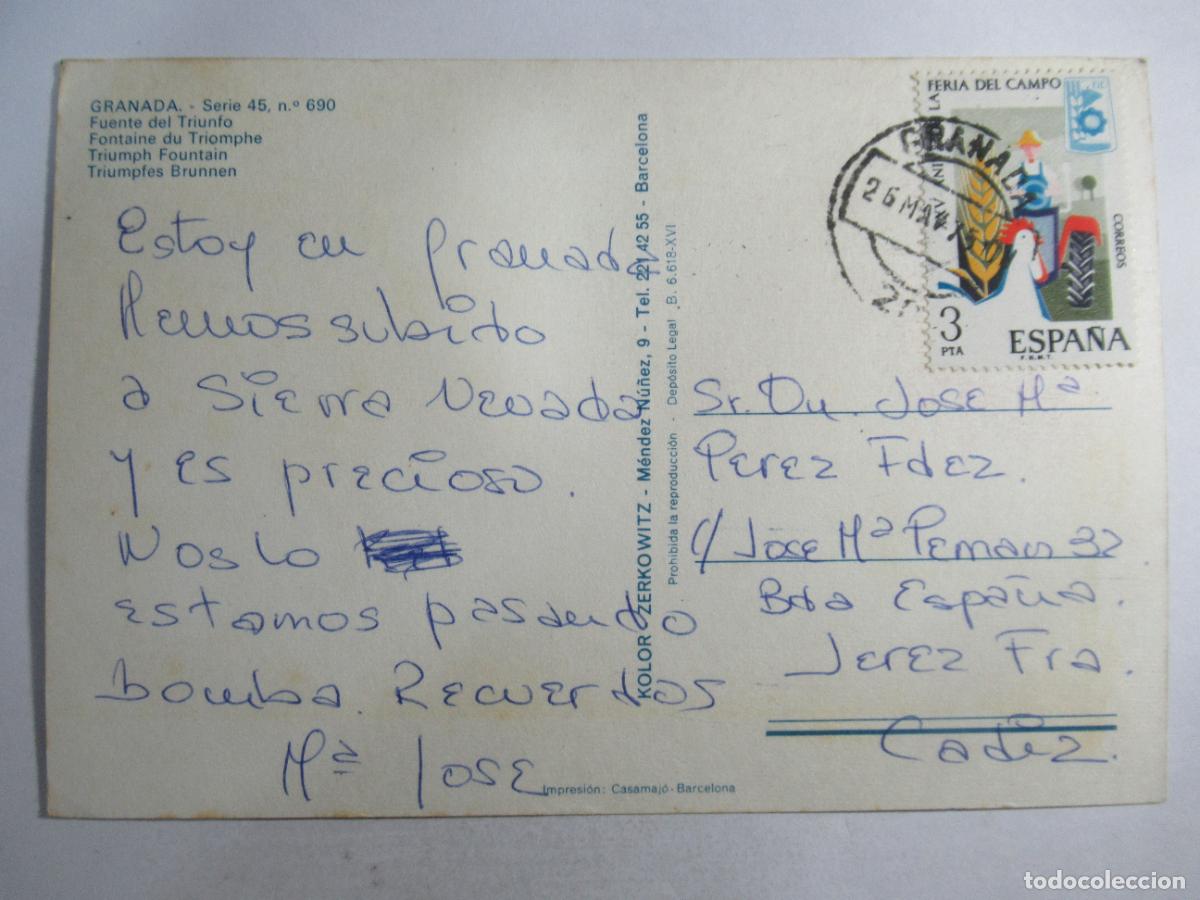 GRANADA. - Serie 45, n.º 690
Fuente del Triunfo
Fontaine du Triomphe
Triumph Fountain
Triumpfes Brunnen
Estoy en Granada
Hemos subido
a Sierra Nevada
y es precioso.
Nos lo
estamos pasando
bomba. Recuerdos
Mª José
KOLOR ZERKOWITZ - Méndez Núñez, 9 - Tel. 221 42 55 - Barcelona
Prohibida la reproducción - Depósito Legal B. 6.618-XVI
Impresión: Casamajó-Barcelona
FERIA DEL CAMPO
CORREOS
3
PTA
ESPAÑA
F.N.M.T.
GRANADA
26 MAY 75
Sr. Dn. Jose Mª
Perez Fdez.
c/ Jose Mª Peman 32
Bda España.
Jerez Fra.
Cadiz.
todocoleccion